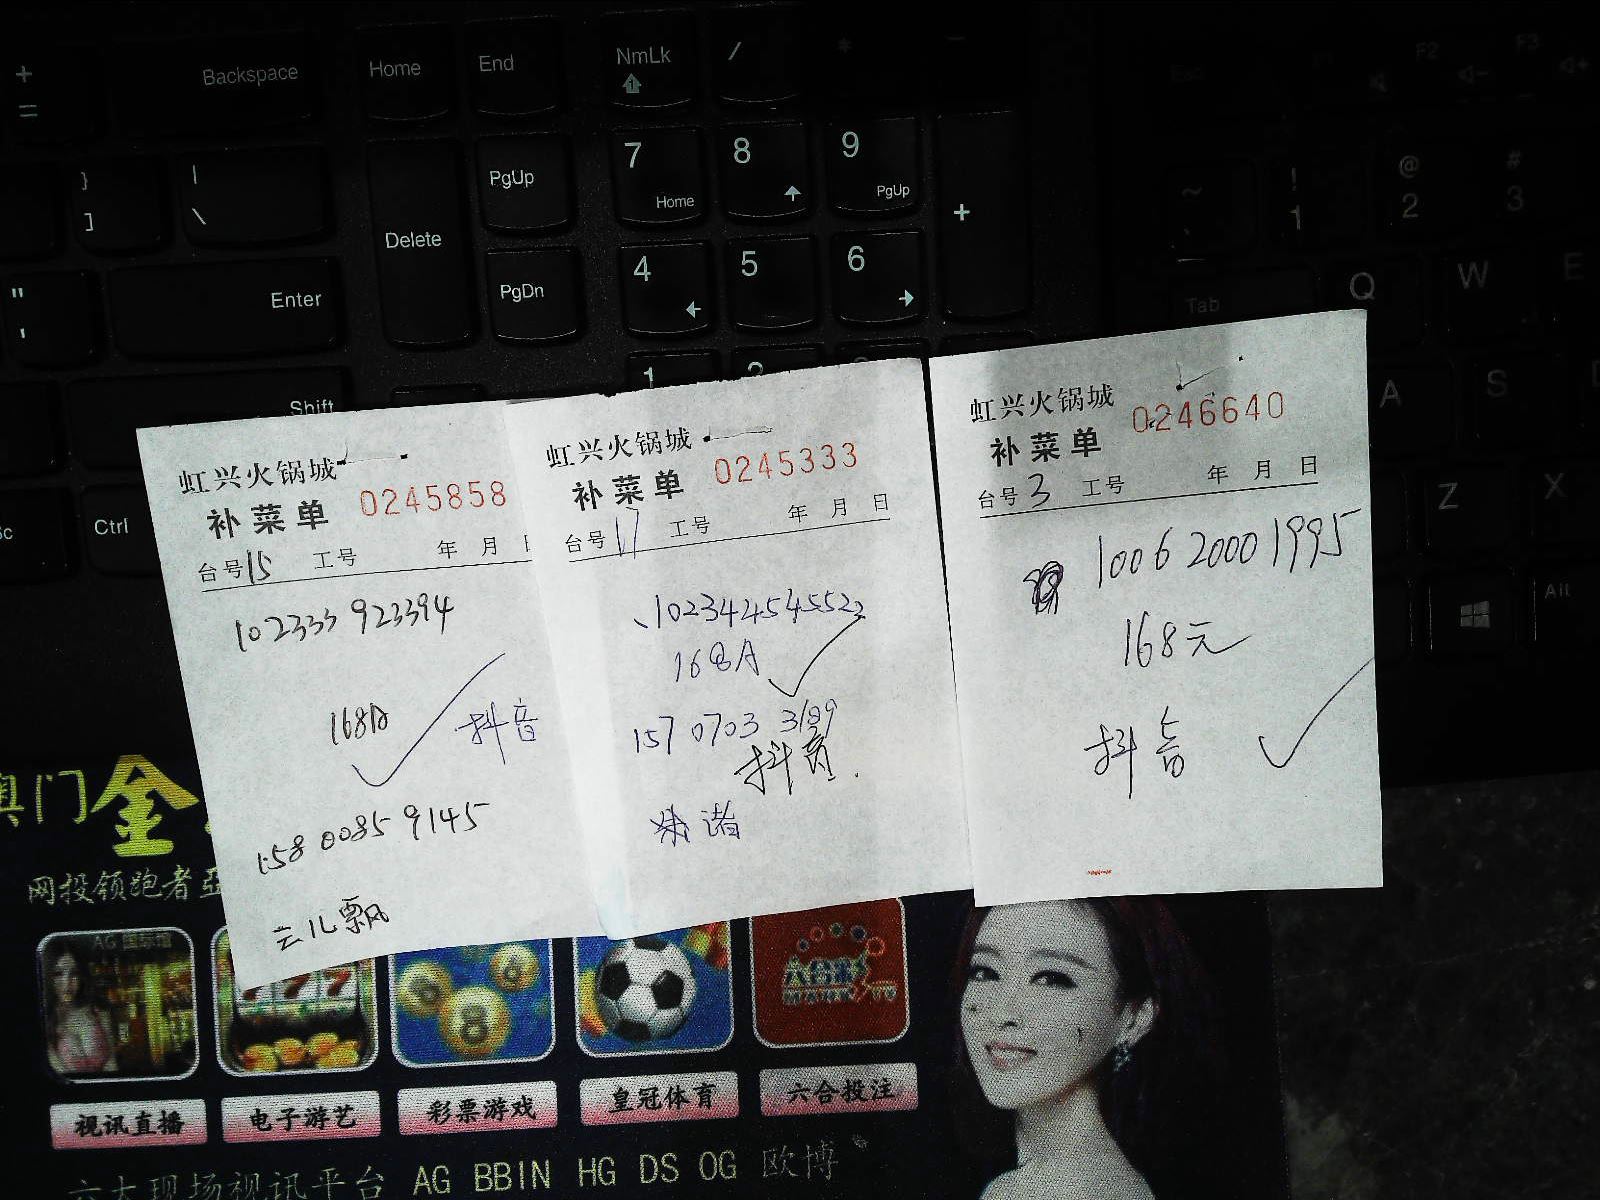 +
=
Backspace
Home
End
NmLk
/
*
-
Esc
F2
F3
}
]
|
\
Delete
PgUp
7
Home
8
9
PgUp
+
~
!
1
@
2
#
3
"
'
Enter
PgDn
4
5
6
Tab
Q
W
E
Shift
1
2
A
S
Ctrl
Z
X
Alt
虹兴火锅城
补菜单
0245858
台号15 工号 年 月
102333 923394
168A
抖音
158 0085 9145
云儿飘
虹兴火锅城
补菜单
0245333
台号17 工号 年 月 日
1023424545522
168A
157 0703 3189
抖音
诺
虹兴火锅城
补菜单
0246640
台号3 工号 年 月 日
1006 2000 1995
168元
抖音
澳门金
网投领跑者亞
AG 国际馆
六合彩
视讯直播
电子游艺
彩票游戏
皇冠体育
六合投注
六大现场视讯平台 AG BBIN HG DS OG 欧博